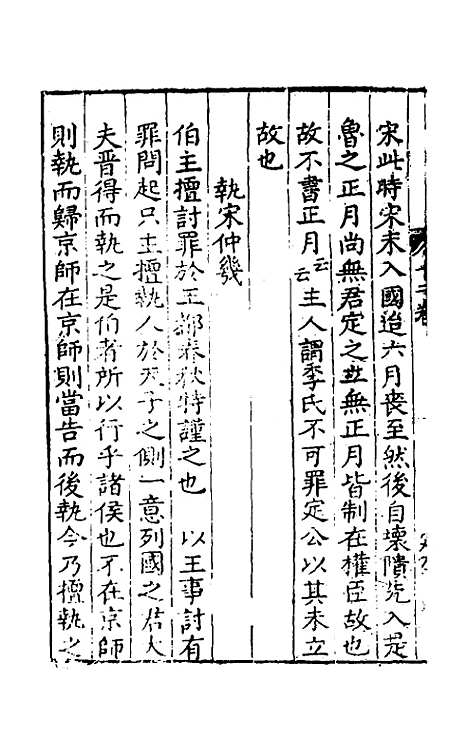 宋此時宋未入國迨六月喪至然後自壞隤先入是
魯之正月尚無君定之並無正月皆制在權臣故也
故不書正月云云主人謂季氏不可罪定公以其未立
故也
執宋仲幾
伯主擅討罪於王都春秋特謹之也 以王事討有
罪問起只主擅執人於天子之側一意列國之君大
夫晉得而執之是伯者所以行乎諸侯也不在京師
則執而歸京師在京師則當告而後執今乃擅執之